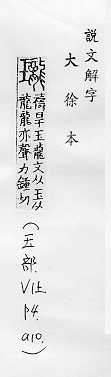 說文解字
大徐本
瓏
禱旱玉龍文从玉从
龍龍亦聲力鍾切
(玉部.V1上.P4.a10.)